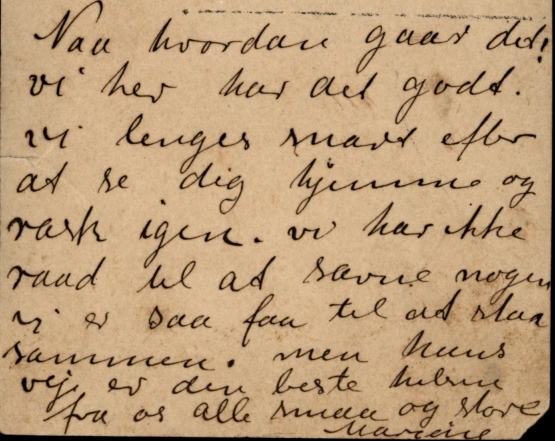 Naa hvordan gaar det!
vi her har det godt.
vi lenges snart efter
at se dig hjemme og
rask igen. vi har ikke
raad til at savne nogen
vi er saa faa til at staa
sammen. men hans
vej er den beste hilsen
fra os alle smaa og store
Mariane